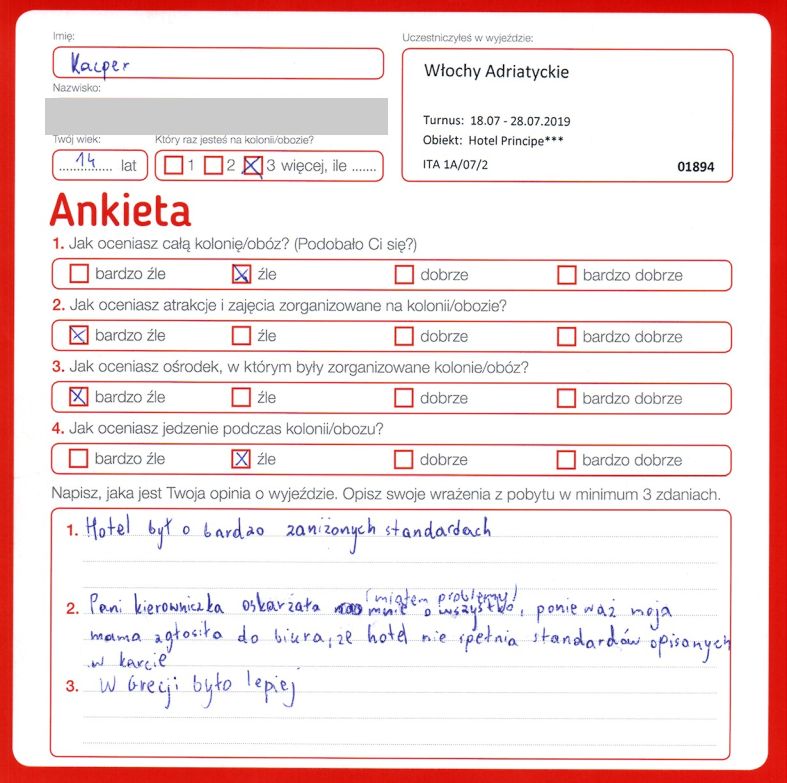 Imię:
Kacper
Nazwisko:
Twój wiek:
14 lat
Który raz jesteś na kolonii/obozie?
1 2 3 więcej, ile .......
Uczestniczyłeś w wyjeździe:
Włochy Adriatyckie
Turnus: 18.07 - 28.07.2019
Obiekt: Hotel Principe***
ITA 1A/07/2 01894
Ankieta
1. Jak oceniasz całą kolonię/obóz? (Podobało Ci się?)
bardzo źle źle dobrze bardzo dobrze
2. Jak oceniasz atrakcje i zajęcia zorganizowane na kolonii/obozie?
bardzo źle źle dobrze bardzo dobrze
3. Jak oceniasz ośrodek, w którym były zorganizowane kolonie/obóz?
bardzo źle źle dobrze bardzo dobrze
4. Jak oceniasz jedzenie podczas kolonii/obozu?
bardzo źle źle dobrze bardzo dobrze
Napisz, jaka jest Twoja opinia o wyjeździe. Opisz swoje wrażenia z pobytu w minimum 3 zdaniach.
1. Hotel był o bardzo zaniżonych standardach
(miałem problemy)
2. Pani kierowniczka oskarżała mnie o wszystko, ponieważ moja
mama zgłosiła do biura, że hotel nie spełnia standardów opisanych
w karcie
3. W Grecji było lepiej